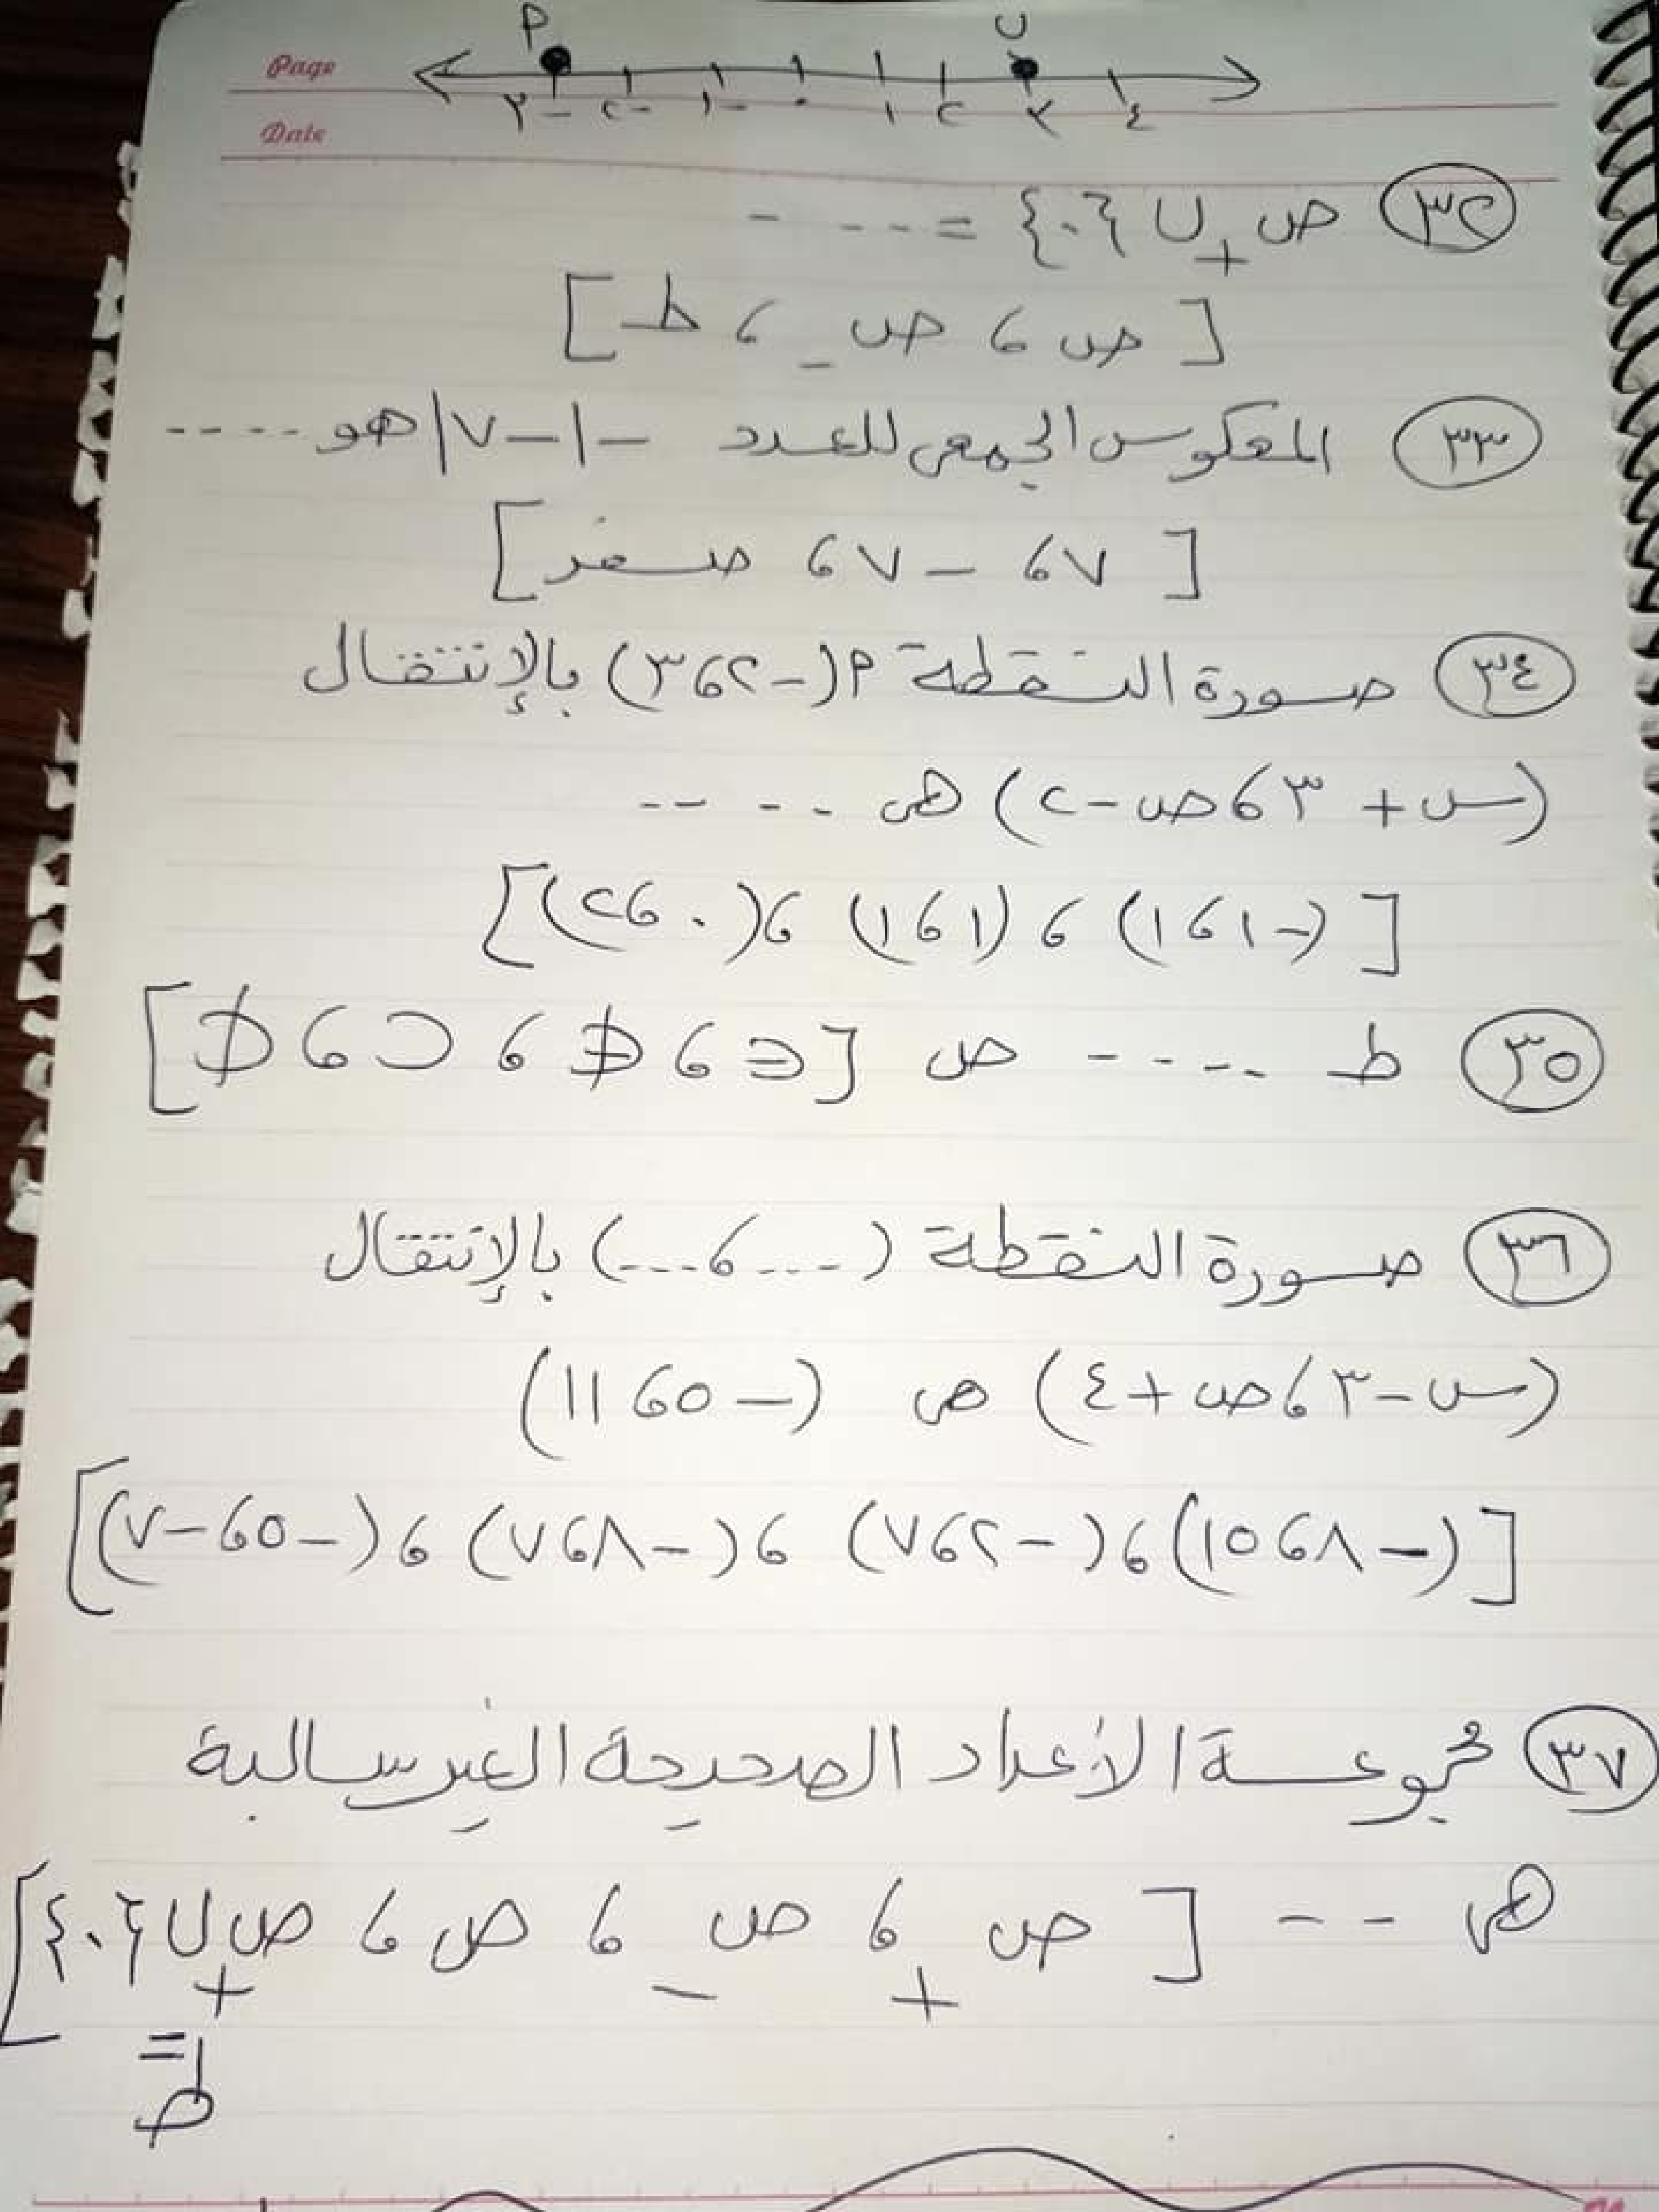 Page
Date
م ن
-٣ -٢ -١ ٠ ١ ٢ ٣ ٤
(٣٢) ص+ ∪ {٠} = - - - -
[ ص ، ص- ، ط ]
(٣٣) المعكوس الجمعى للعدد -|-٧| هو ----
[ ٧ ، -٧ ، صفر ]
(٣٤) صورة النقطة م(-٢ ، ٣) بالإنتقال
(س + ٣ ، ص - ٢) هى - - - -
[ (-١ ، ١) ، (١ ، ١) ، (٠ ، ٢) ]
(٣٥) ط - - - - ص [ ∈ ، ∉ ، ⊂ ، ⊄ ]
(٣٦) صورة النقطة (--- ، ---) بالإنتقال
(س - ٣ ، ص + ٤) هى (-٥ ، ١١)
[ (-٨ ، ١٥) ، (-٢ ، ٧) ، (-٨ ، ٧) ، (-٥ ، -٧) ]
(٣٧) مجموعة الأعداد الصحيحة الغير سالبة
هى - - [ ص+ ، ص- ، ص ، ص+ ∪ {٠} ]
= ط